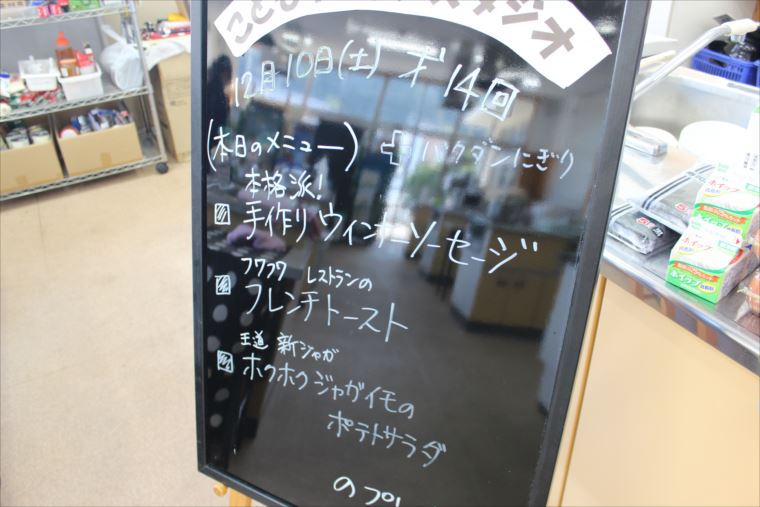 12月10日(土) 第14回
(本日のメニュー) バクダンにぎり
本格派!
手作りウィンナーソーセージ
フワフワ レストランの
フレンチトースト
王道 新ジャガ
ホクホクジャガイモの
ポテトサラダ
のプレ
ホイップ
ホイップ